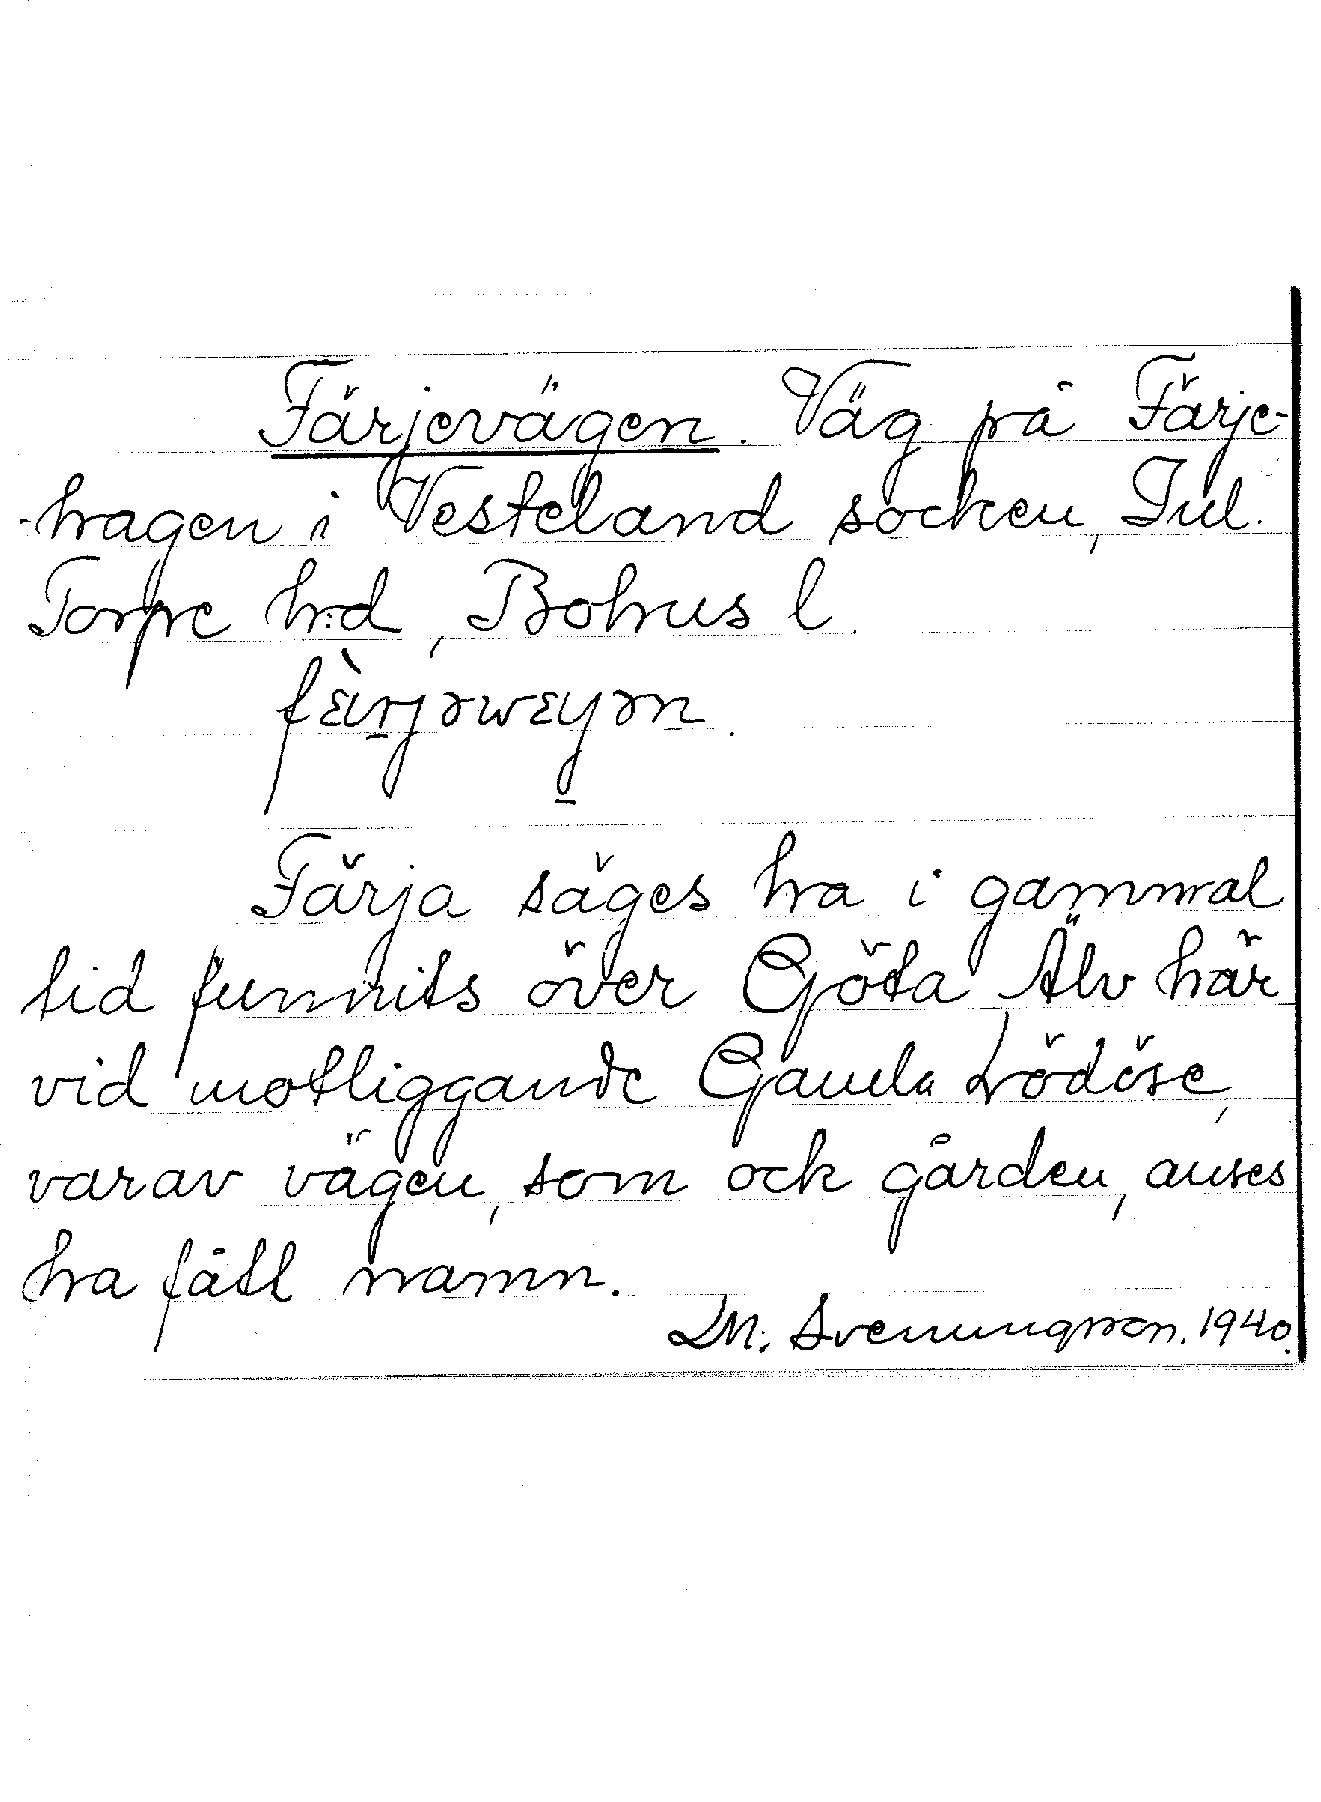 Färjevägen. Väg på Färje-
-hagen i Vesteland socken, Inl.
Torpe h:d, Bohus l.
fὲrjəwεγən.
Färja säges ha i gammal
tid funnits över Göta Älv här
vid motliggande Gamla Lödöse,
varav vägen, som ock gården, anses
ha fått namn.
M. Svenungsson. 1940.